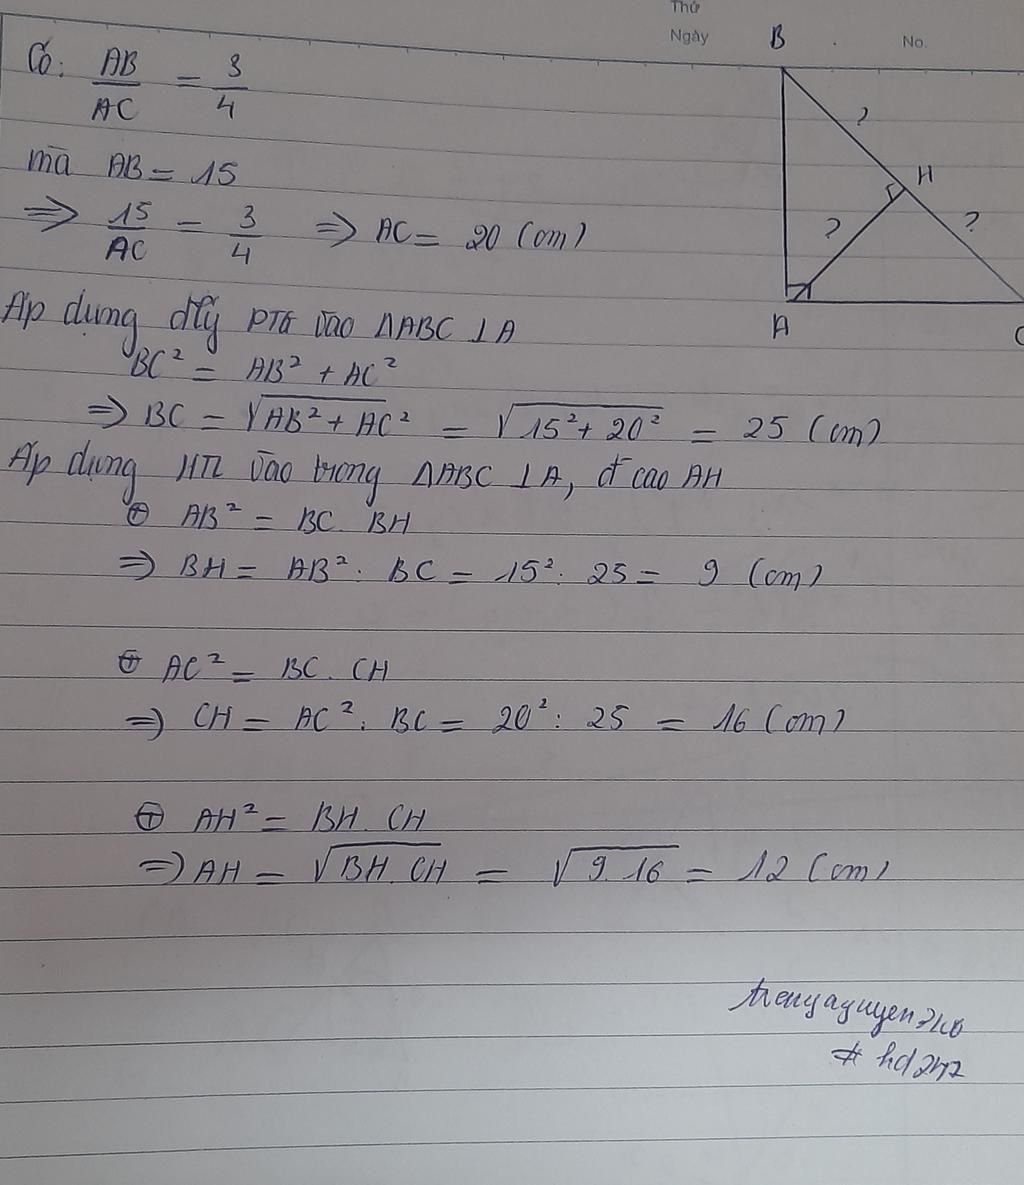 Thứ
Ngày
No.
Có: AB/AC = 3/4
mà AB = 15
=> 15/AC = 3/4 => AC = 20 (cm)
B
?
H
?
?
A
C
Áp dụng đlý PTG vào ΔABC ⊥ A
BC² = AB² + AC²
=> BC = √(AB² + AC²) = √(15² + 20²) = 25 (cm)
Áp dụng HTL vào trong ΔABC ⊥ A, đ cao AH
⊕ AB² = BC . BH
=> BH = AB² : BC = 15² : 25 = 9 (cm)
⊕ AC² = BC . CH
=> CH = AC² : BC = 20² : 25 = 16 (cm)
⊕ AH² = BH . CH
=> AH = √(BH . CH) = √(9 . 16) = 12 (cm)
# hd247